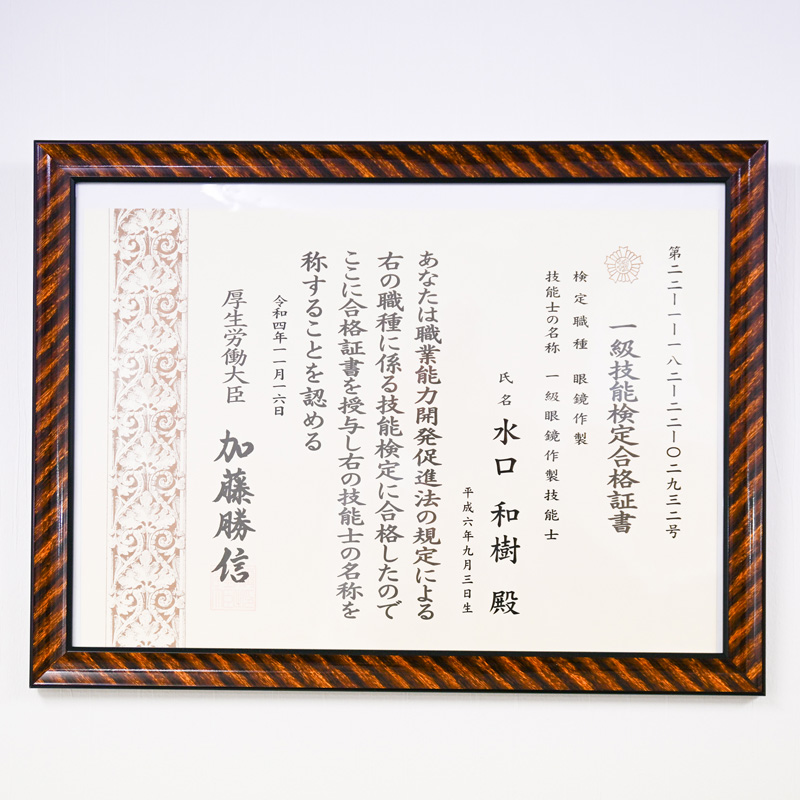 第二二ー一ー一八二ー二二ー〇二九三二号
一級技能検定合格証書
検定職種 眼鏡作製
技能士の名称 一級眼鏡作製技能士
氏名 水口和樹殿
平成六年九月三日生
あなたは職業能力開発促進法の規定による
右の職種に係る技能検定に合格したので
ここに合格証書を授与し右の技能士の名称を
称することを認める
令和四年一一月一六日
厚生労働大臣 加藤勝信